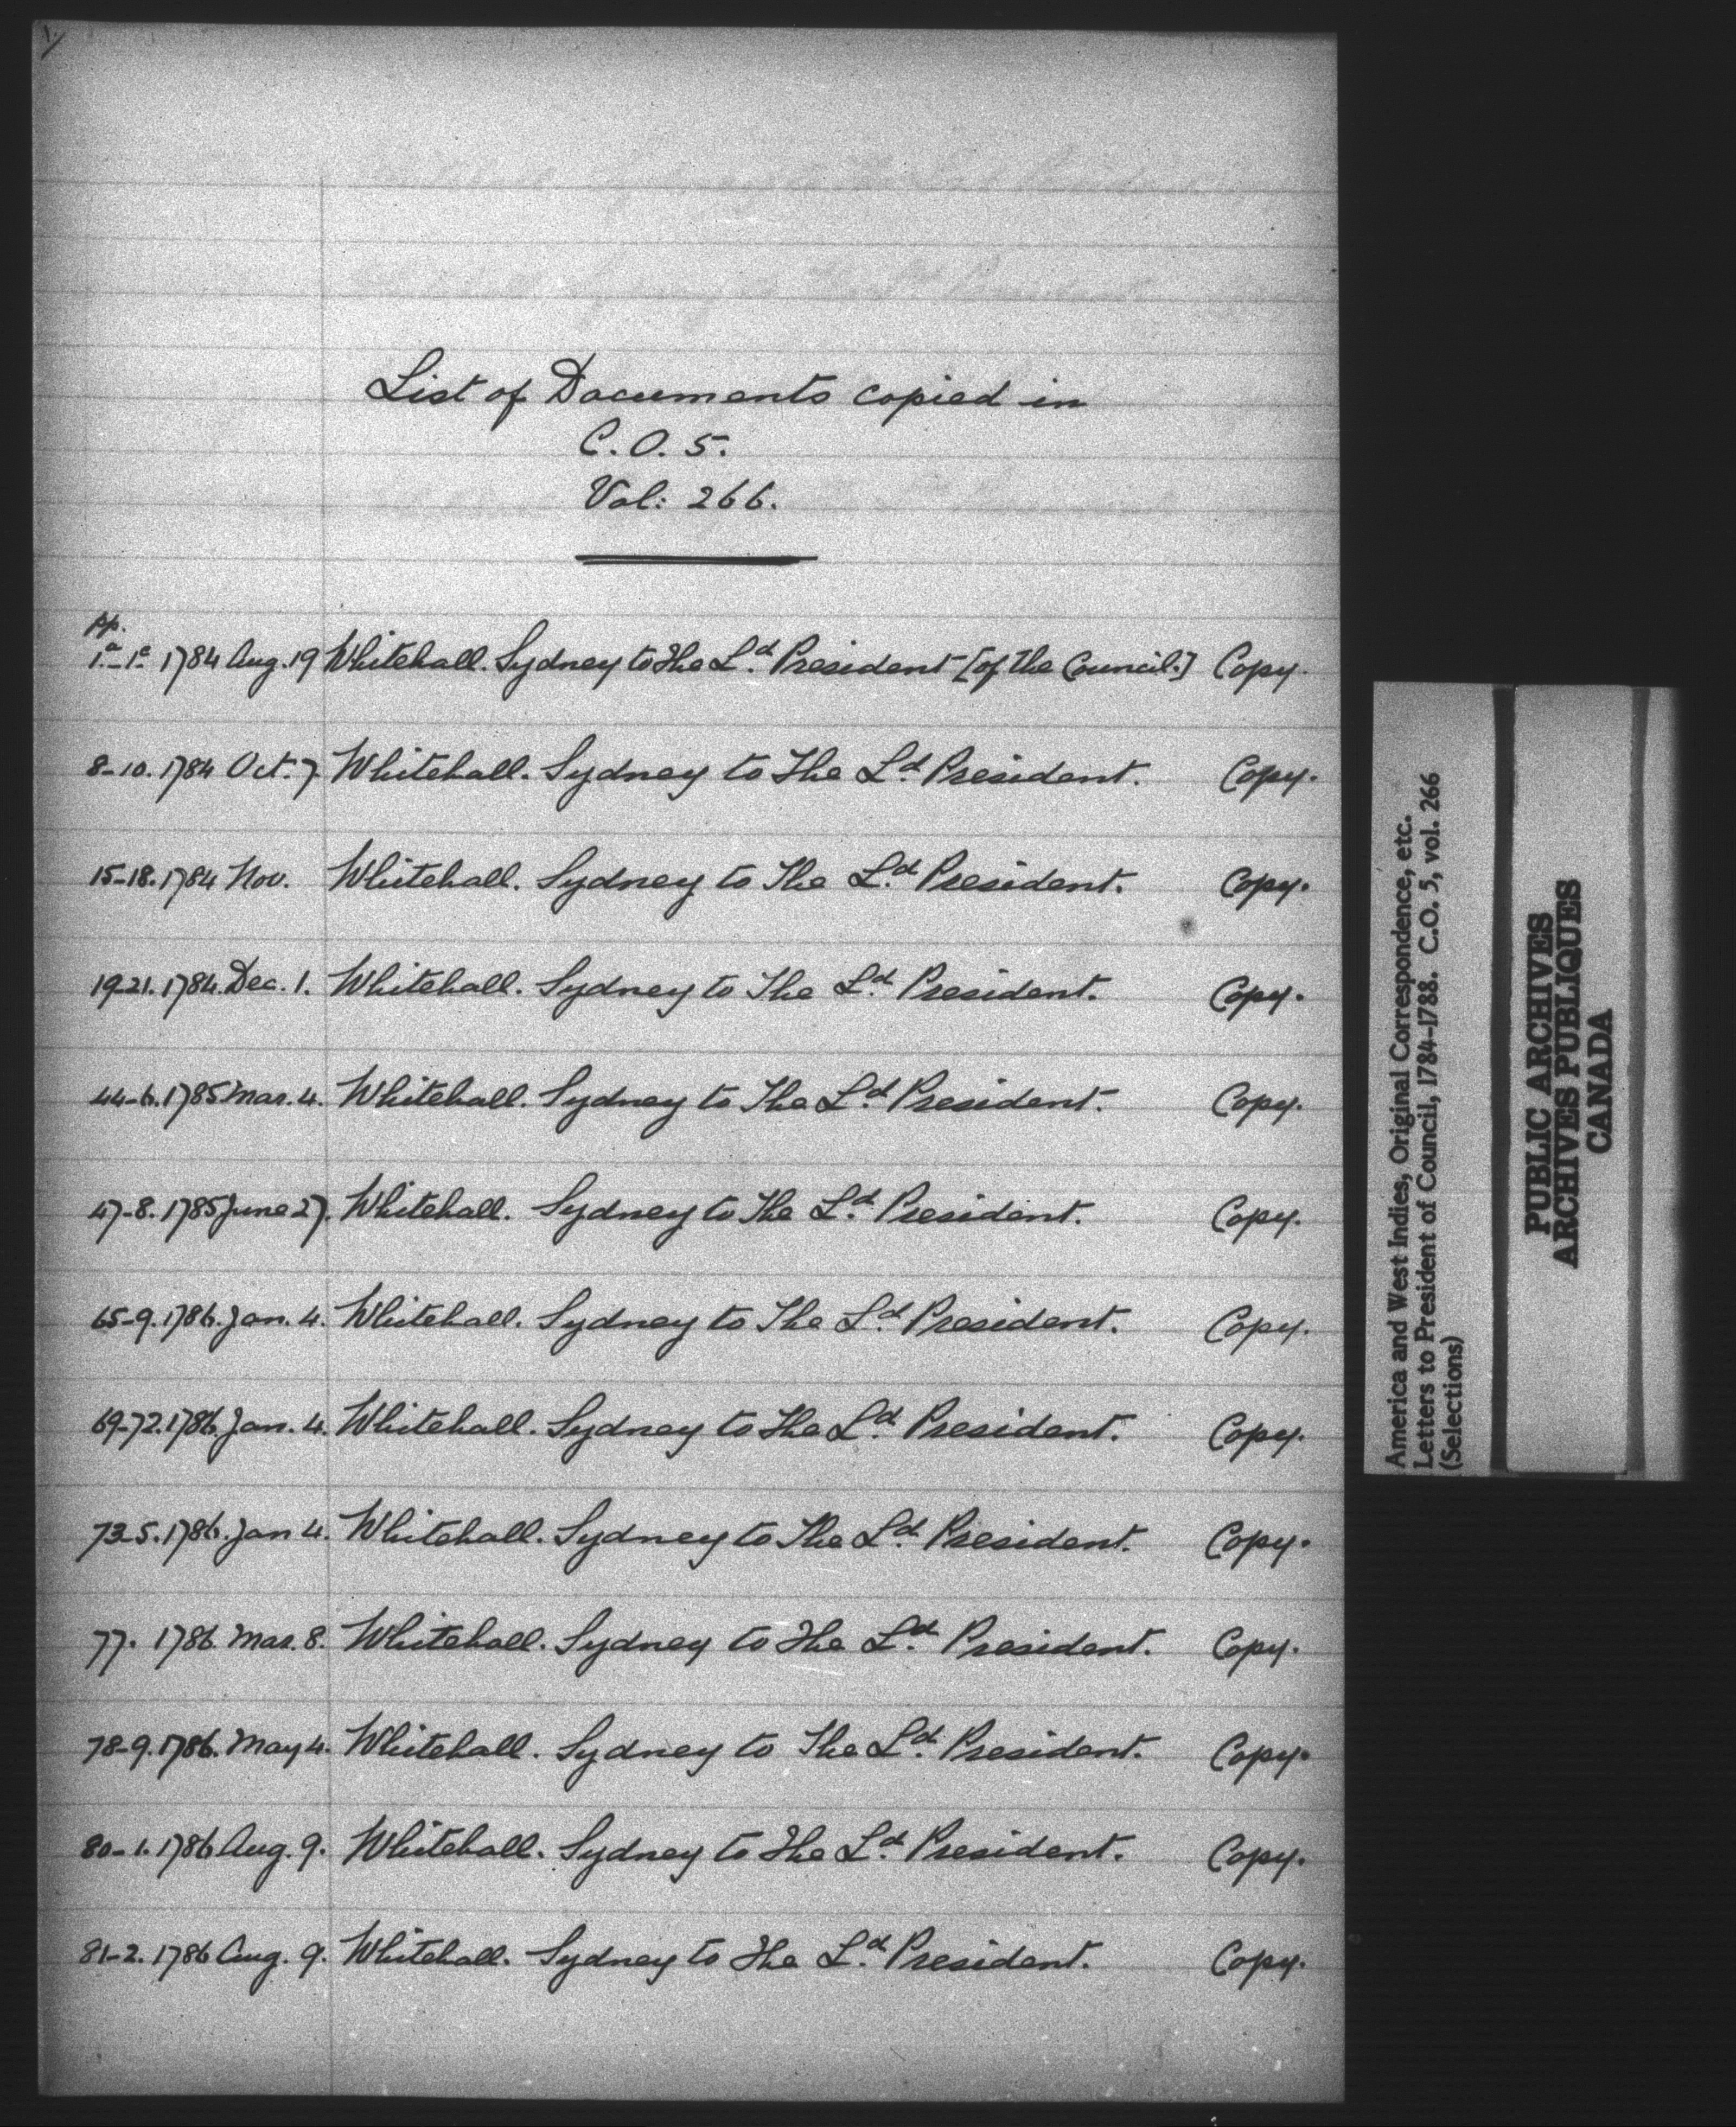 1.
List of Documents copied in
C.O. 5.
Vol: 266.
pp.
1.a-1e 1784 Aug. 19 Whitehall. Sydney to The Ld. President [of the Council.] Copy.
8-10. 1784 Oct. 7. Whitehall. Sydney to The Ld. President. Copy.
15-18. 1784 Nov. Whitehall. Sydney to The Ld. President. Copy.
19-21. 1784. Dec. 1. Whitehall. Sydney to The Ld. President. Copy.
44-6. 1785 Mar. 4. Whitehall. Sydney to The Ld. President. Copy.
47-8. 1785 June 27. Whitehall. Sydney to The Ld. President. Copy.
65-9. 1786. Jan. 4. Whitehall. Sydney to The Ld. President. Copy.
69-72. 1786. Jan. 4. Whitehall. Sydney to The Ld. President. Copy.
73-5. 1786. Jan 4. Whitehall. Sydney to The Ld. President. Copy.
77. 1786. Mar. 8. Whitehall. Sydney to The Ld. President. Copy.
78-9. 1786. May 4. Whitehall. Sydney to The Ld. President. Copy.
80-1. 1786 Aug. 9. Whitehall. Sydney to The Ld. President. Copy.
81-2. 1786 Aug. 9. Whitehall. Sydney to The Ld. President. Copy.
America and West Indies, Original Correspondence, etc.
Letters to President of Council, 1784-1788. C.O. 5, vol. 266
(Selections)
PUBLIC ARCHIVES
ARCHIVES PUBLIQUES
CANADA